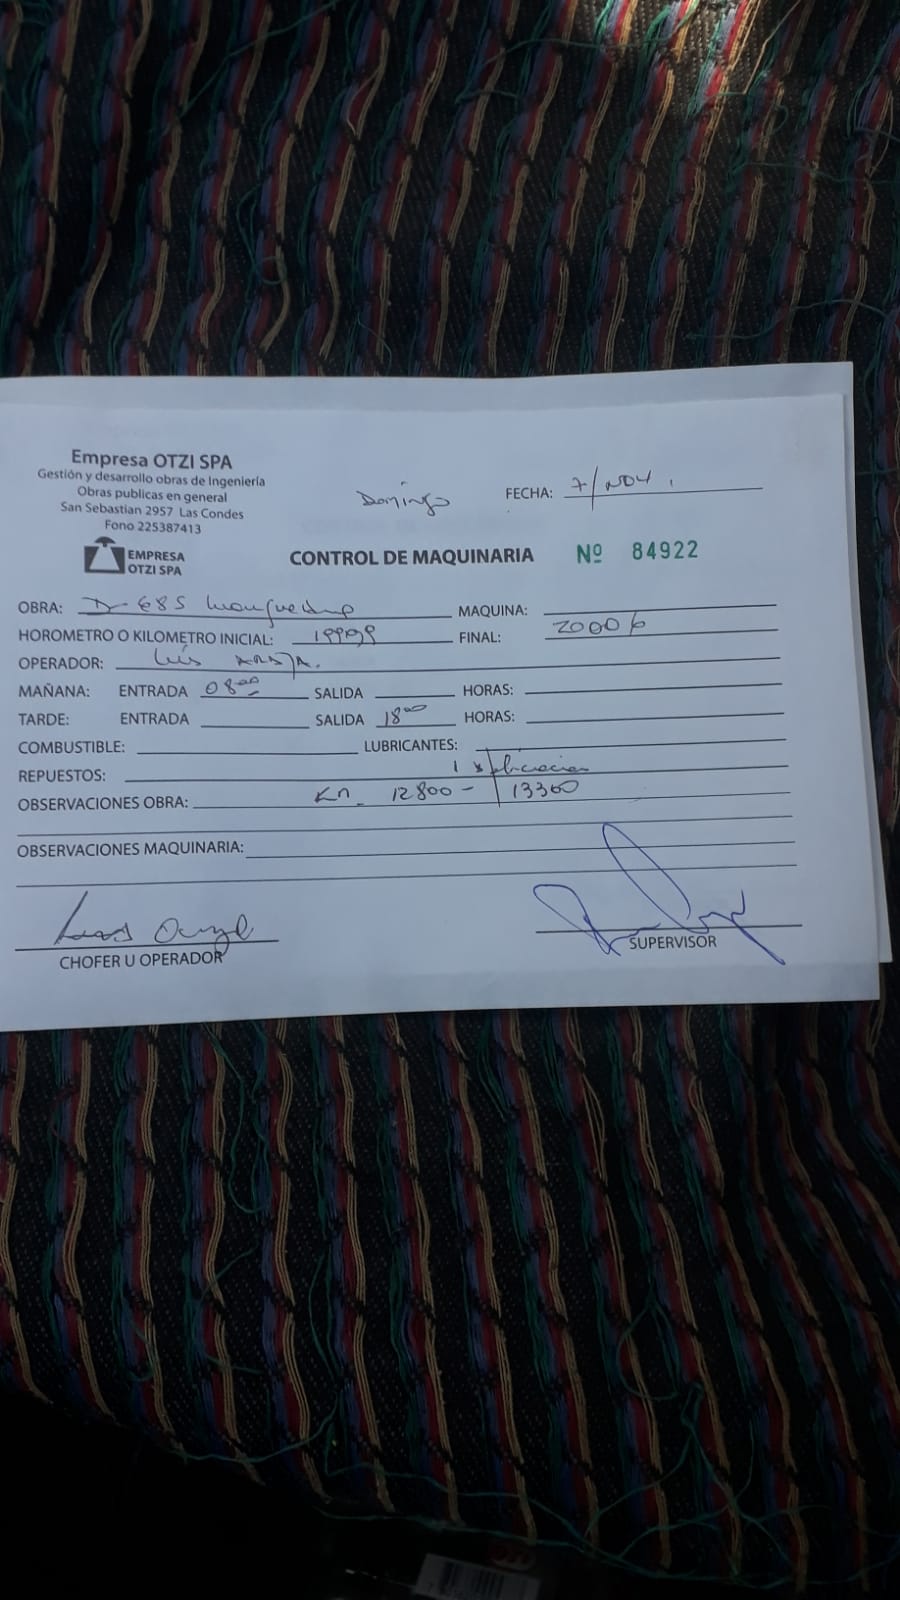 Empresa OTZI SPA
Gestión y desarrollo obras de Ingeniería
Obras publicas en general
San Sebastian 2957 Las Condes
Fono 225387413
EMPRESA
OTZI SPA
Domingo
FECHA: 7/NOV.
CONTROL DE MAQUINARIA Nº 84922
OBRA: D-685 MAQUINA:
HOROMETRO O KILOMETRO INICIAL: 19999 FINAL: 20006
OPERADOR: Luis
MAÑANA: ENTRADA 08⁰⁰ SALIDA HORAS:
TARDE: ENTRADA SALIDA 18⁰⁰ HORAS:
COMBUSTIBLE: LUBRICANTES:
REPUESTOS:
OBSERVACIONES OBRA: Km 12800 - 13360
OBSERVACIONES MAQUINARIA:
CHOFER U OPERADOR
SUPERVISOR